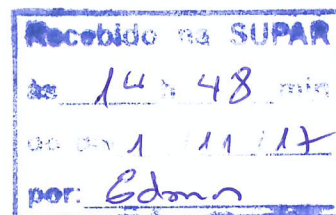 Recebido na SUPAR
às 14 h 48 min
do dia 1 / 11 / 17
por: